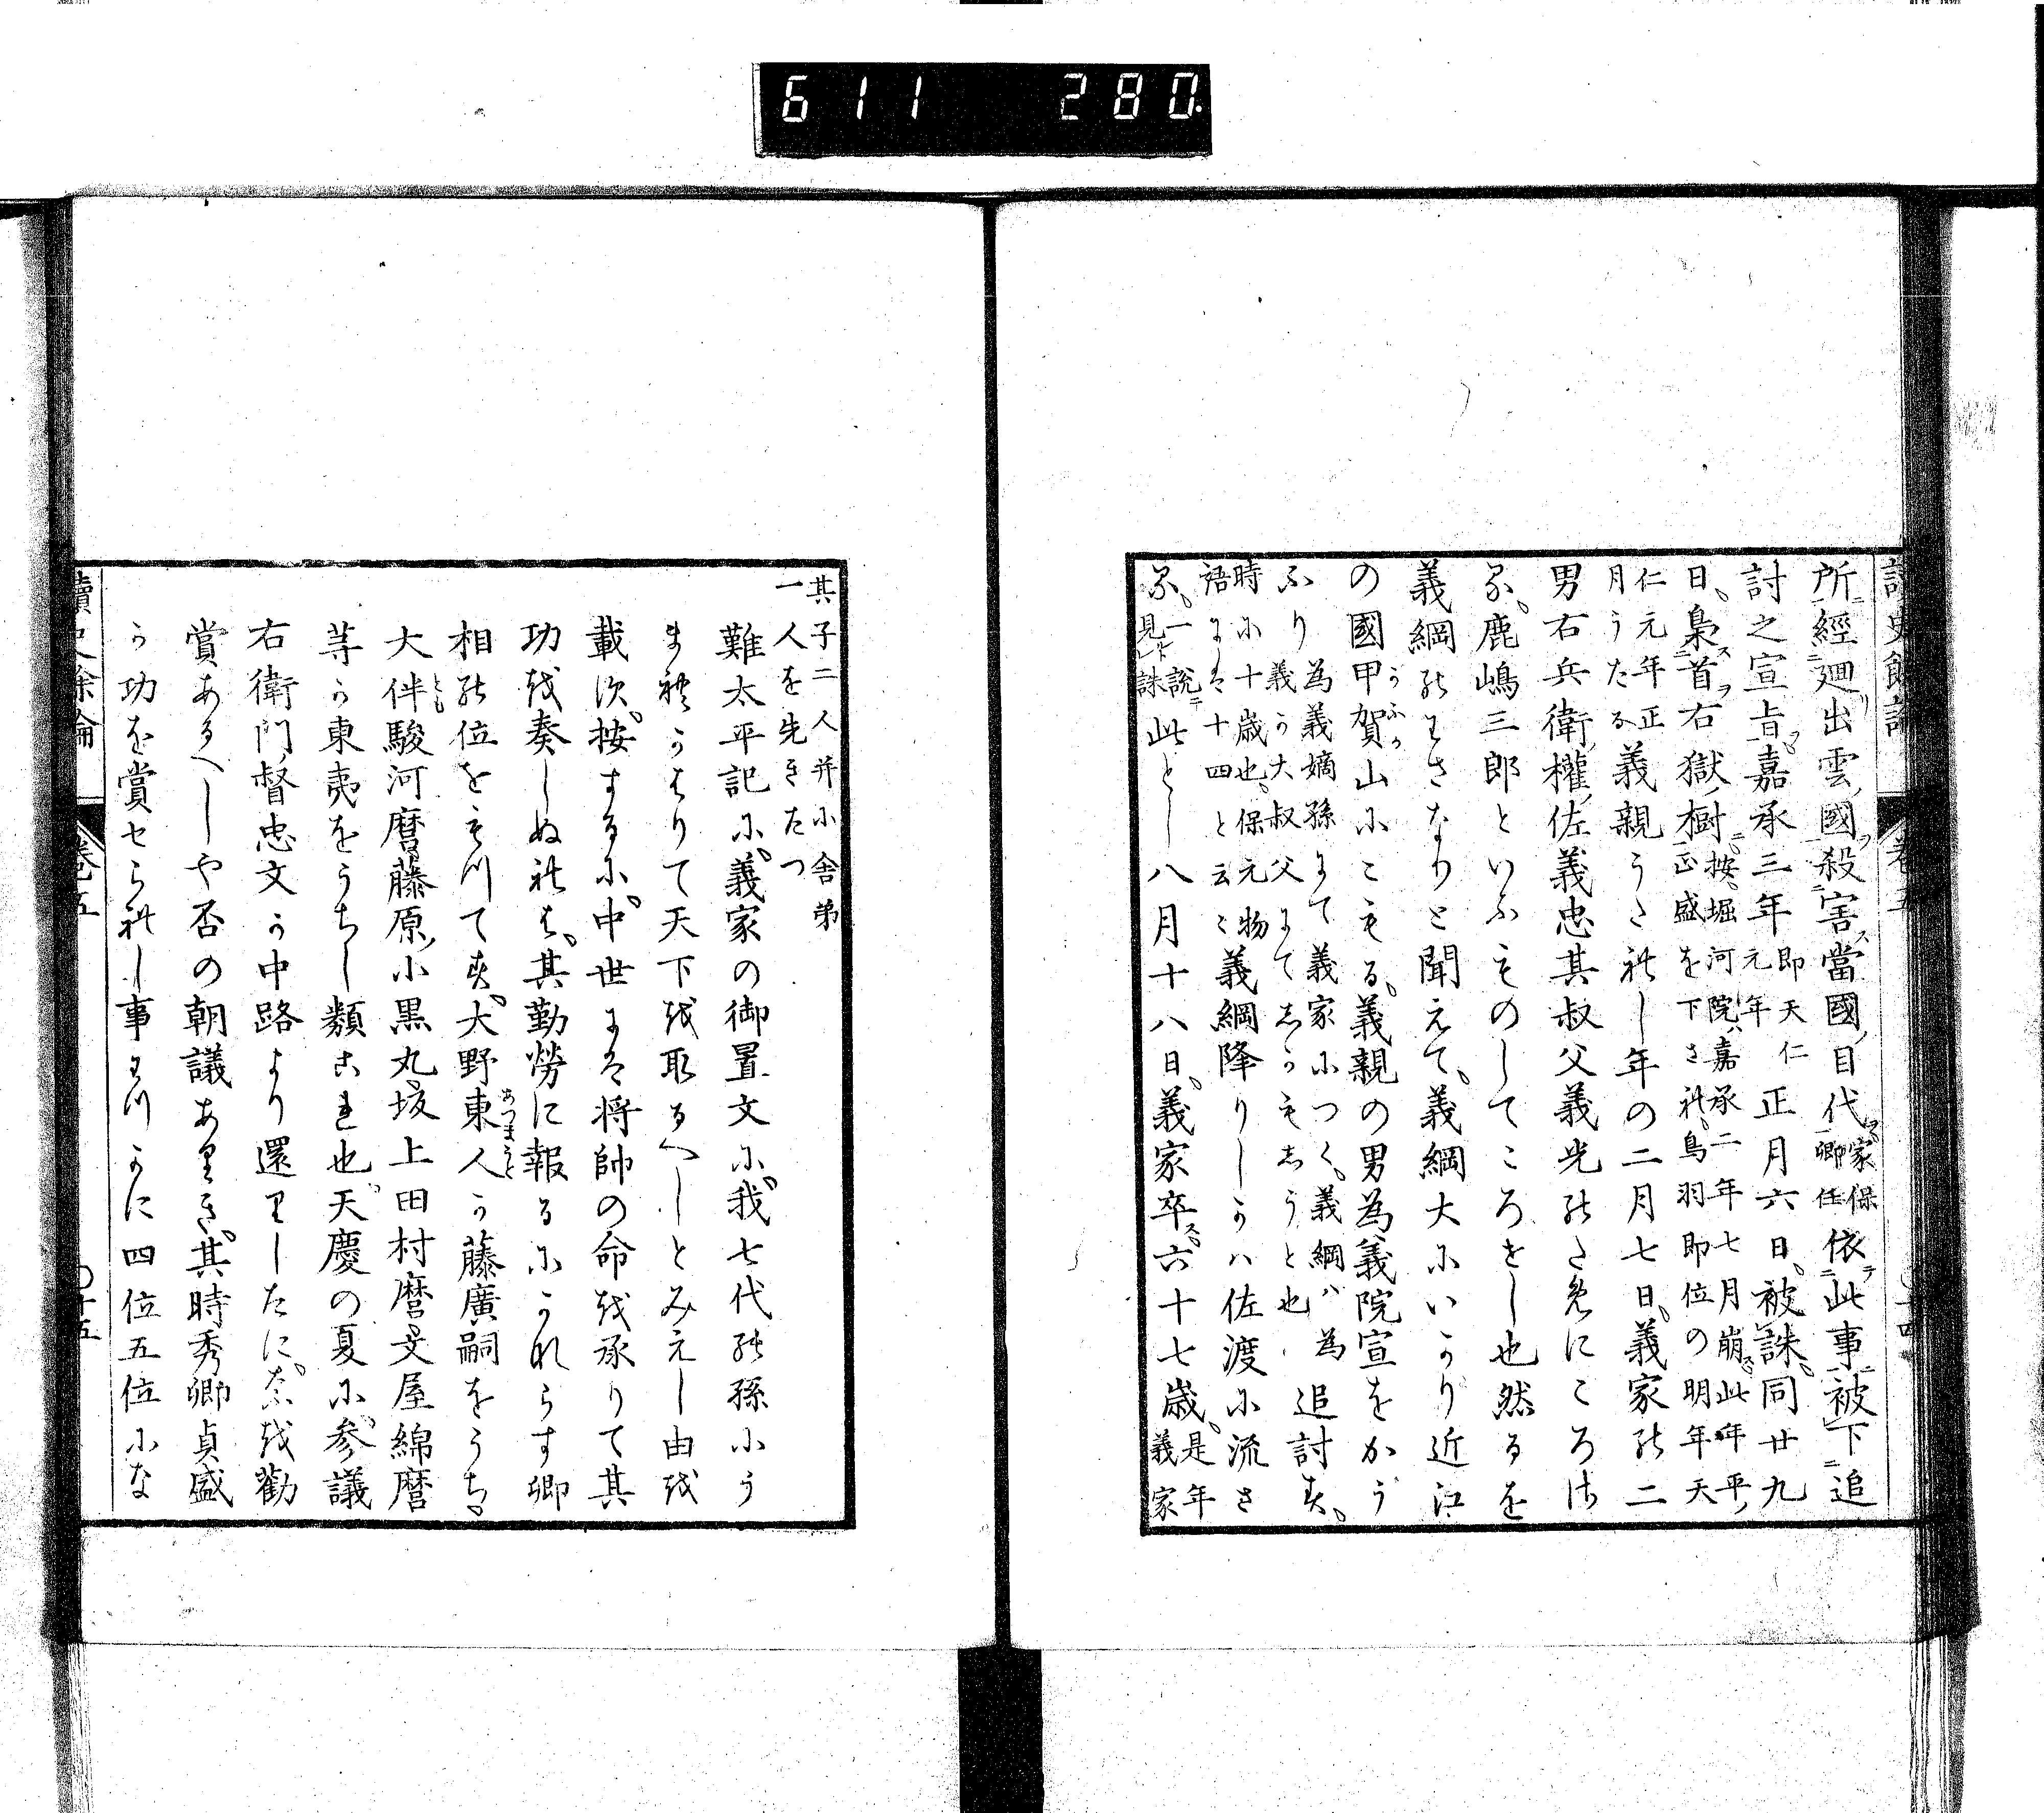 611 280
所經廻出雲國殺害當國目代家保卿任依此事被下追
討之宣旨嘉承三年即天仁元年正月六日被誅同廿九
日梟首右獄樹按堀河院ハ嘉承二年七月崩此年平正盛を下さる鳥羽即位の明年天
仁元年正月うたる義親うたれし年の二月七日義家の二
男右兵衛權佐義忠其叔父義光のためにころさ
る鹿嶋三郎といふものしてころせし也然るを
義綱のわさなりと聞えて義綱大にいかり近江
の國甲賀山にこもる義親の男為義院宣をかう
ふり為義嫡孫にて義家につく義綱ハ為義か大叔父にてしかもしうと也追討す
時に十歳也保元物語には十四と云々義綱降りしかハ佐渡に流さ
る一説ニ見誅此とし八月十八日義家卒ス六十七歳是年義家
其子二人并に舎弟一人を先きたつ
難太平記に義家の御置文に我七代の孫にう
まれかはりて天下を取るへしとみえし由を
載す按するに中世には将帥の命を承りて其
功を奏しぬれは其勤勞に報るにかならす卿
相の位をもつてす大野東人か藤廣嗣をうち
大伴駿河麿藤原小黒丸坂上田村麿文屋綿麿
等か東夷をうちし類これ也天慶の夏に參議
右衛門督忠文か中路より還りしたに奈を勸
賞あるへしや否の朝議ありき其時秀卿貞盛
か功を賞せられし事わつかに四位五位にな
讀史餘論 卷五 〇十五